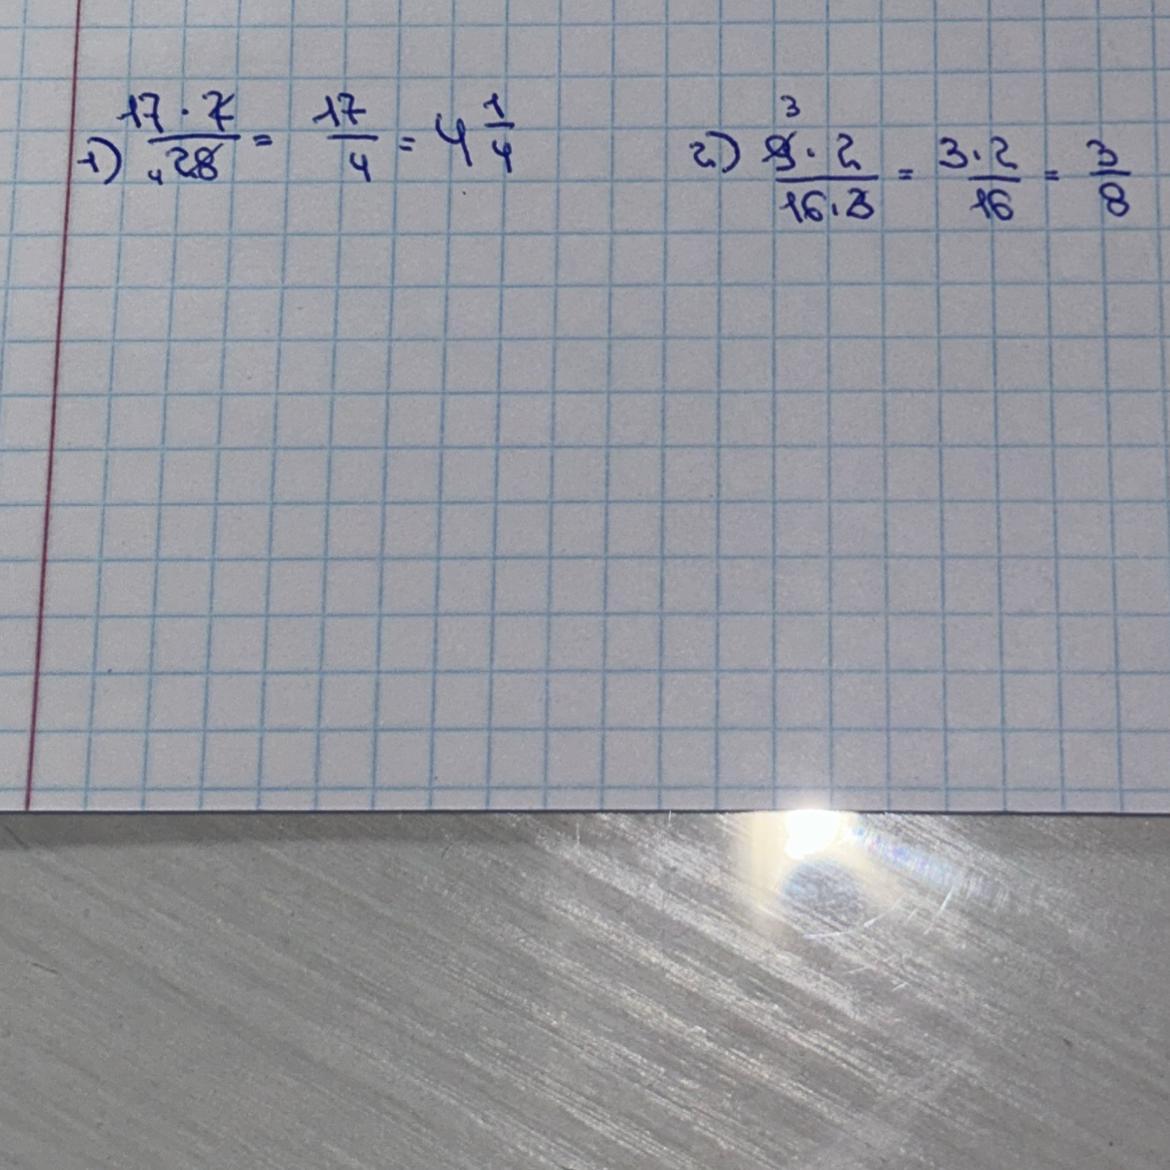 1) 17 · 7 / 4 28 = 17/4 = 4 1/4
2) 3 9 · 2 / 16 · 3 = 3 · 2 / 16 = 3/8